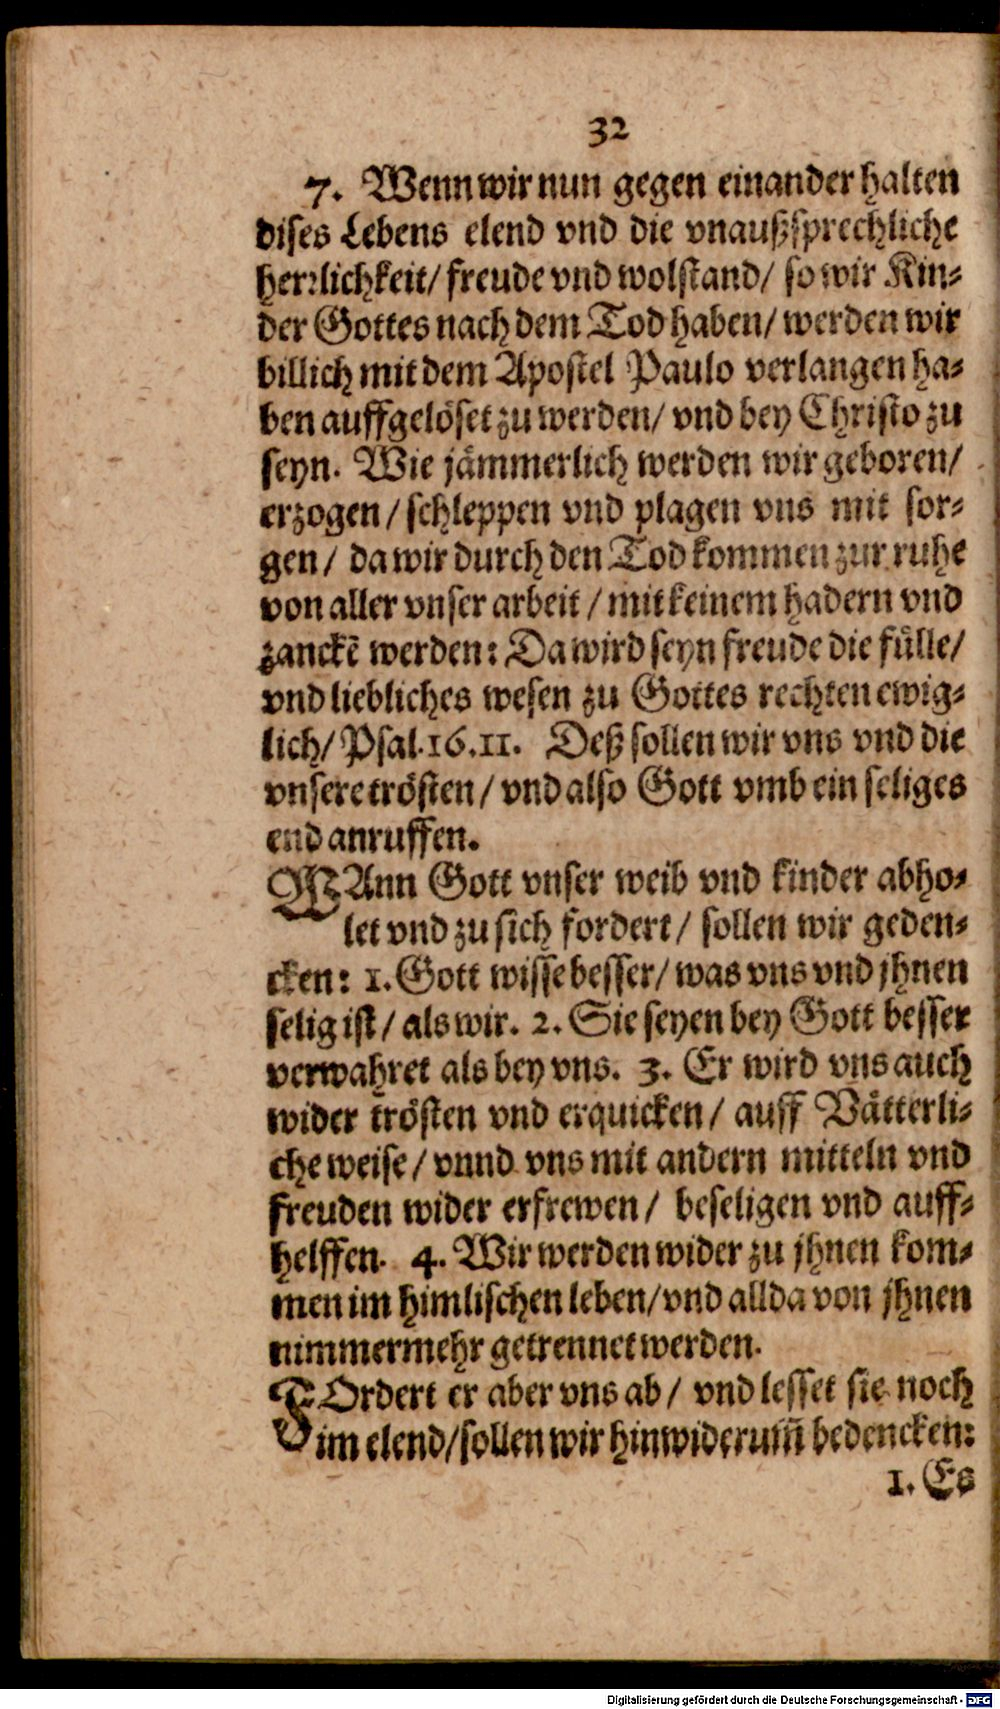 32
7. Wenn wir nun gegen einander halten
dises Lebens elend vnd die vnaußsprechliche
herꝛlichkeit/ freude vnd wolstand/ so wir Kin-
der Gottes nach dem Tod haben/ werden wir
billich mit dem Apostel Paulo verlangen ha-
ben auffgelöset zu werden/ vnd bey Christo zu
seyn. Wie jämmerlich werden wir geboren/
erzogen/ schleppen vnd plagen vns mit sor-
gen/ da wir durch den Tod kommen zur ruhe
von aller vnser arbeit/ mit keinem hadern vnd
zanckẽ werden: Da wird seyn freude die fülle/
vnd liebliches wesen zu Gottes rechten ewig-
lich/ Psal. 16. 11. Deß sollen wir vns vnd die
vnsere trösten/ vnd also Gott vmb ein seliges
end anruffen.
WAnn Gott vnser weib vnd kinder abho-
let vnd zu sich fordert/ sollen wir geden-
cken: 1. Gott wisse besser/ was vns vnd jhnen
selig ist/ als wir. 2. Sie seyen bey Gott besser
verwahret als bey vns. 3. Er wird vns auch
wider trösten vnd erquicken/ auff Vätterli-
che weise/ vnnd vns mit andern mitteln vnd
freuden wider erfrewen/ beseligen vnd auff-
helffen. 4. Wir werden wider zu jhnen kom-
men im himlischen leben/ vnd allda von jhnen
nimmermehr getrennet werden.
FOrdert er aber vns ab/ vnd lesset sie noch
im elend/ sollen wir hinwiderum̃ bedencken:
1. Es
Digitalisierung gefördert durch die Deutsche Forschungsgemeinschaft - DFG